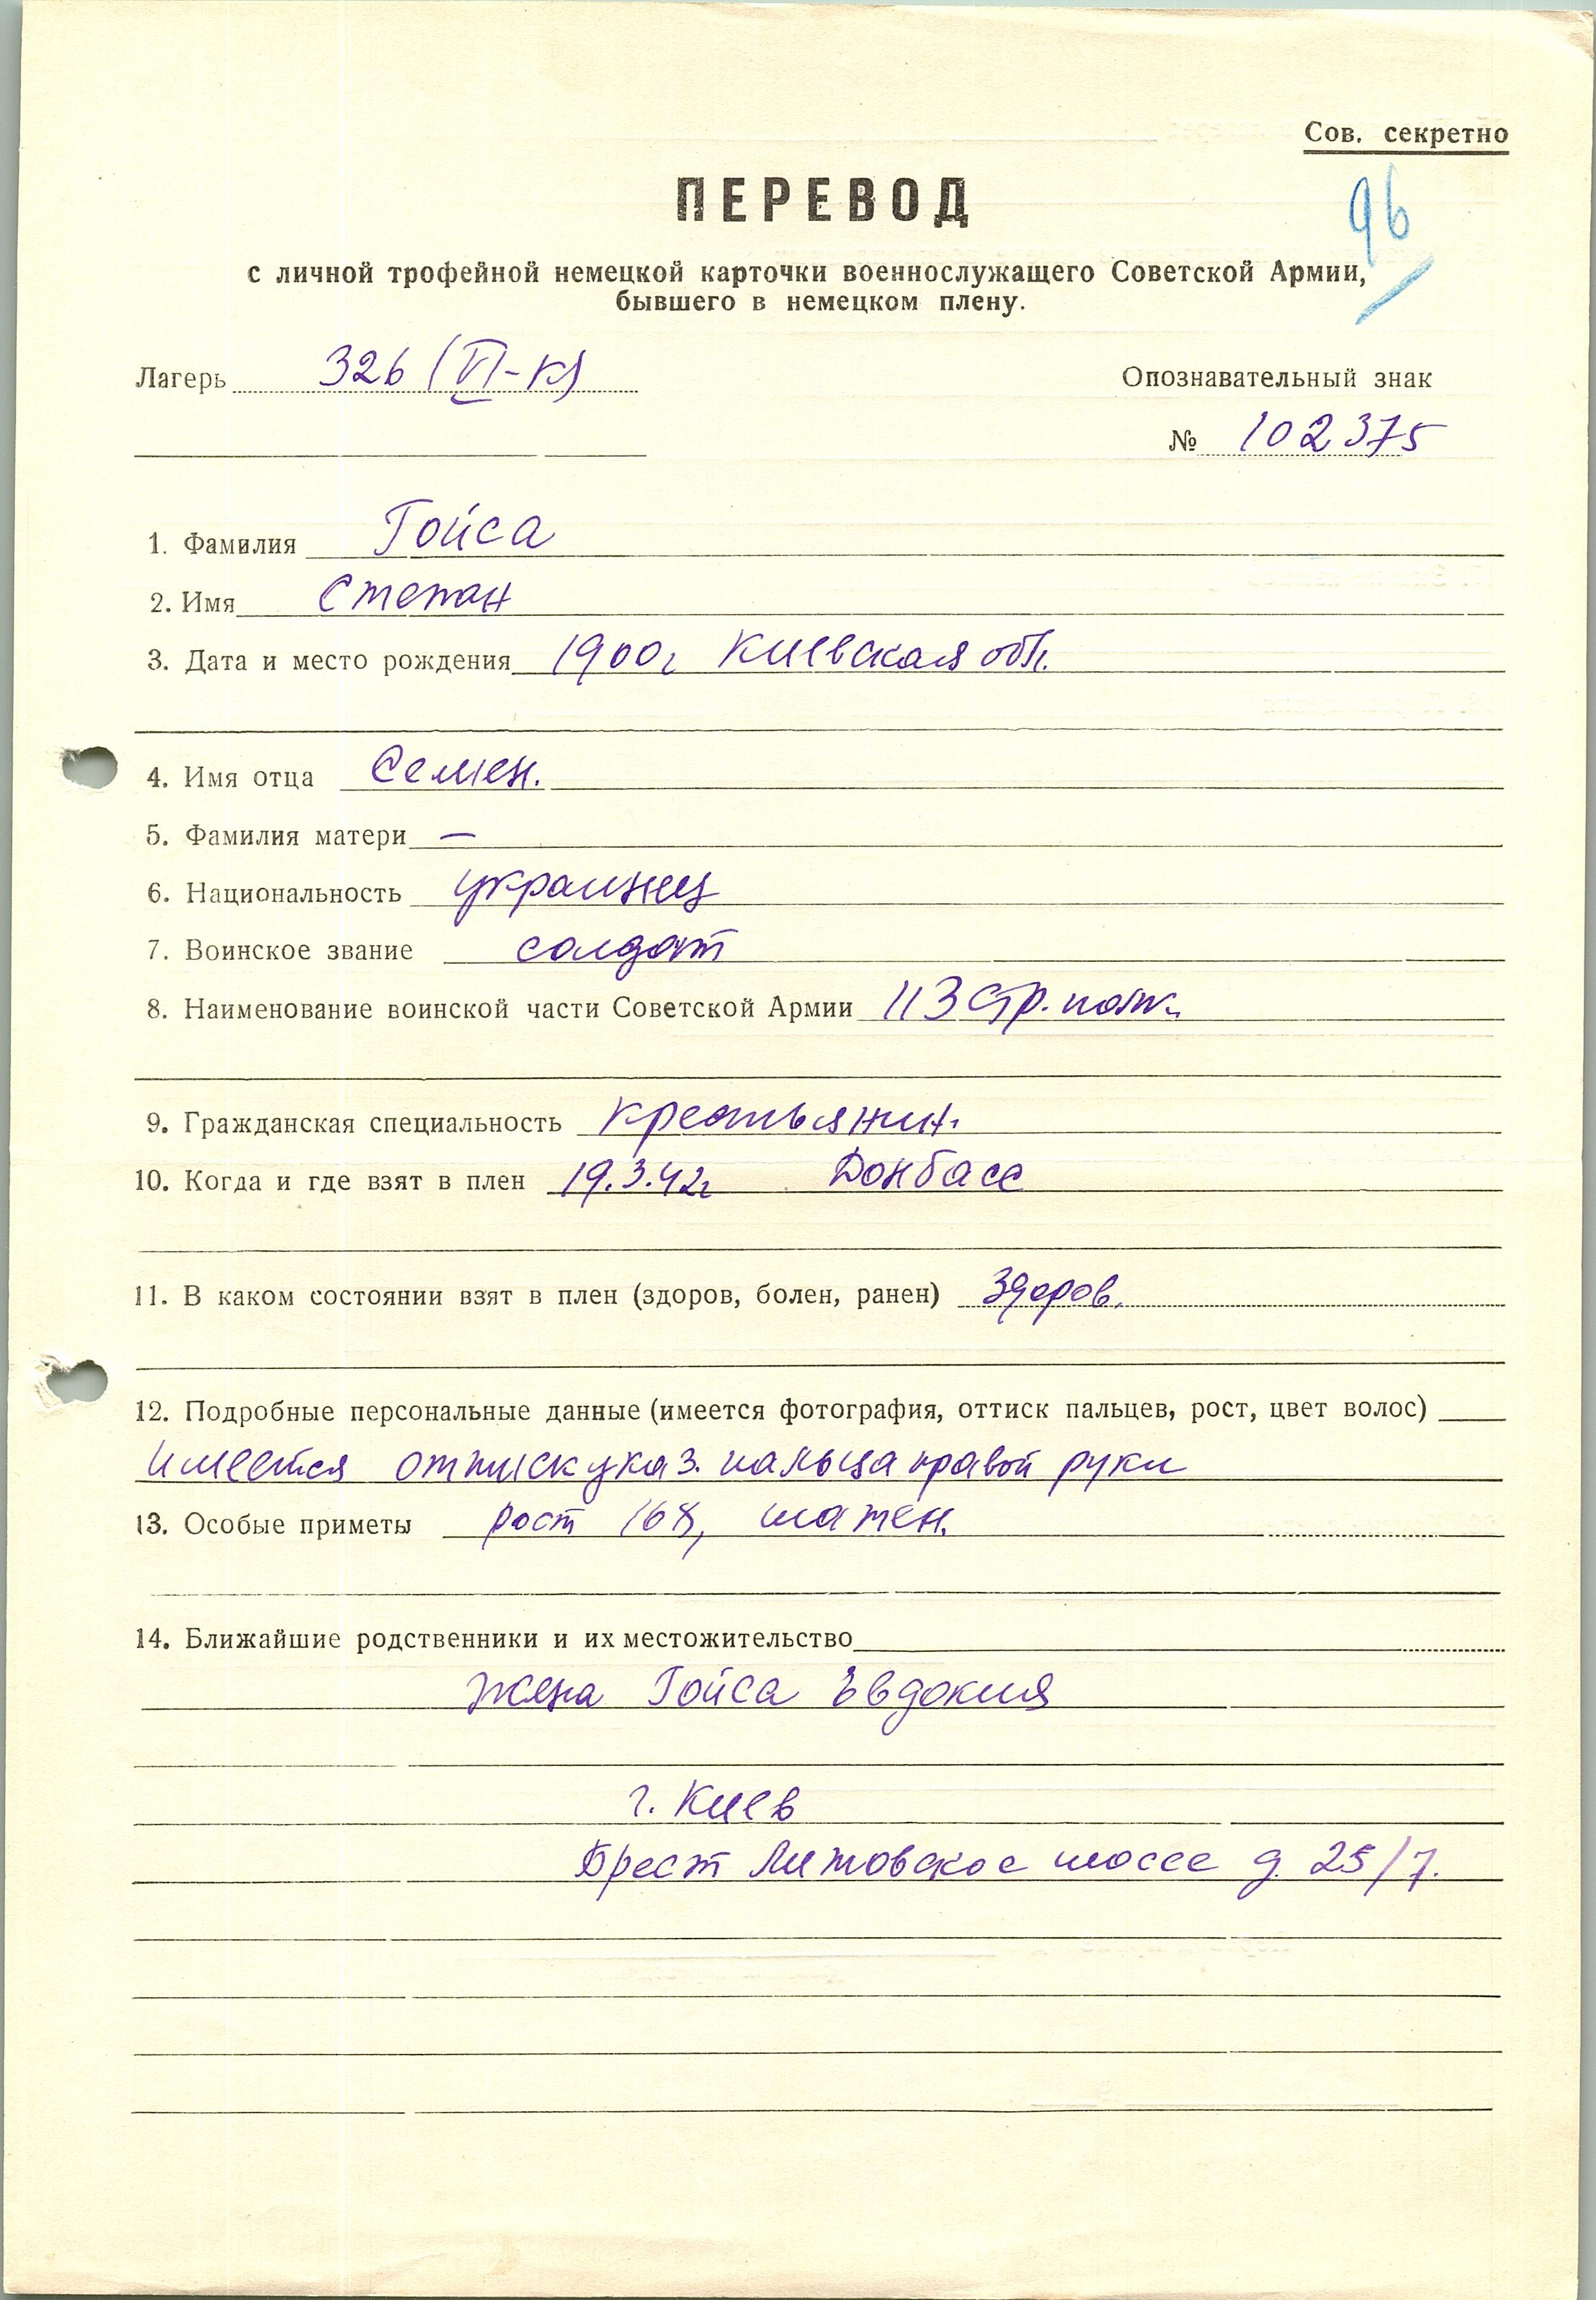 Сов. секретно
ПЕРЕВОД
96
с личной трофейной немецкой карточки военнослужащего Советской Армии,
бывшего в немецком плену.
Лагерь 326 (VI-К)
Опознавательный знак
№ 102375
1. Фамилия Гойса
2. Имя Степан
3. Дата и место рождения 1900г Киевская обл.
4. Имя отца Семен.
5. Фамилия матери —
6. Национальность украинец
7. Воинское звание солдат
8. Наименование воинской части Советской Армии 113 стр. полк.
9. Гражданская специальность крестьянин.
10. Когда и где взят в плен 19.3.42г Донбасс
11. В каком состоянии взят в плен (здоров, болен, ранен) Здоров.
12. Подробные персональные данные (имеется фотография, оттиск пальцев, рост, цвет волос)
имеется оттиск указ. пальца правой руки
13. Особые приметы рост 168, шатен.
14. Ближайшие родственники и их местожительство
жена Гойса Евдокия
г. Киев
Брест Литовское шоссе д. 25/7.